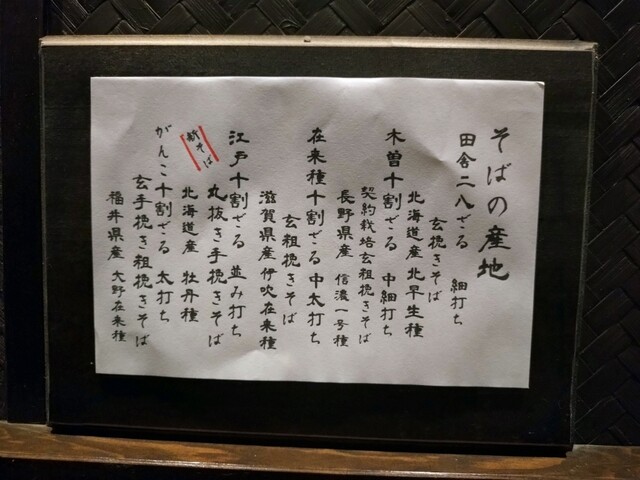 そばの産地
田舎二八ざる 細打ち
玄挽きそば
北海道産 北早生種
木曽十割ざる 中細打ち
契約栽培玄粗挽きそば
長野県産 信濃一号種
在来種十割ざる 中太打ち
玄粗挽きそば
滋賀県産 伊吹在来種
江戸十割ざる 並み打ち
丸抜き手挽きそば
新そば
北海道産 牡丹種
がんこ十割ざる 太打ち
玄手挽き粗挽きそば
福井県産 大野在来種